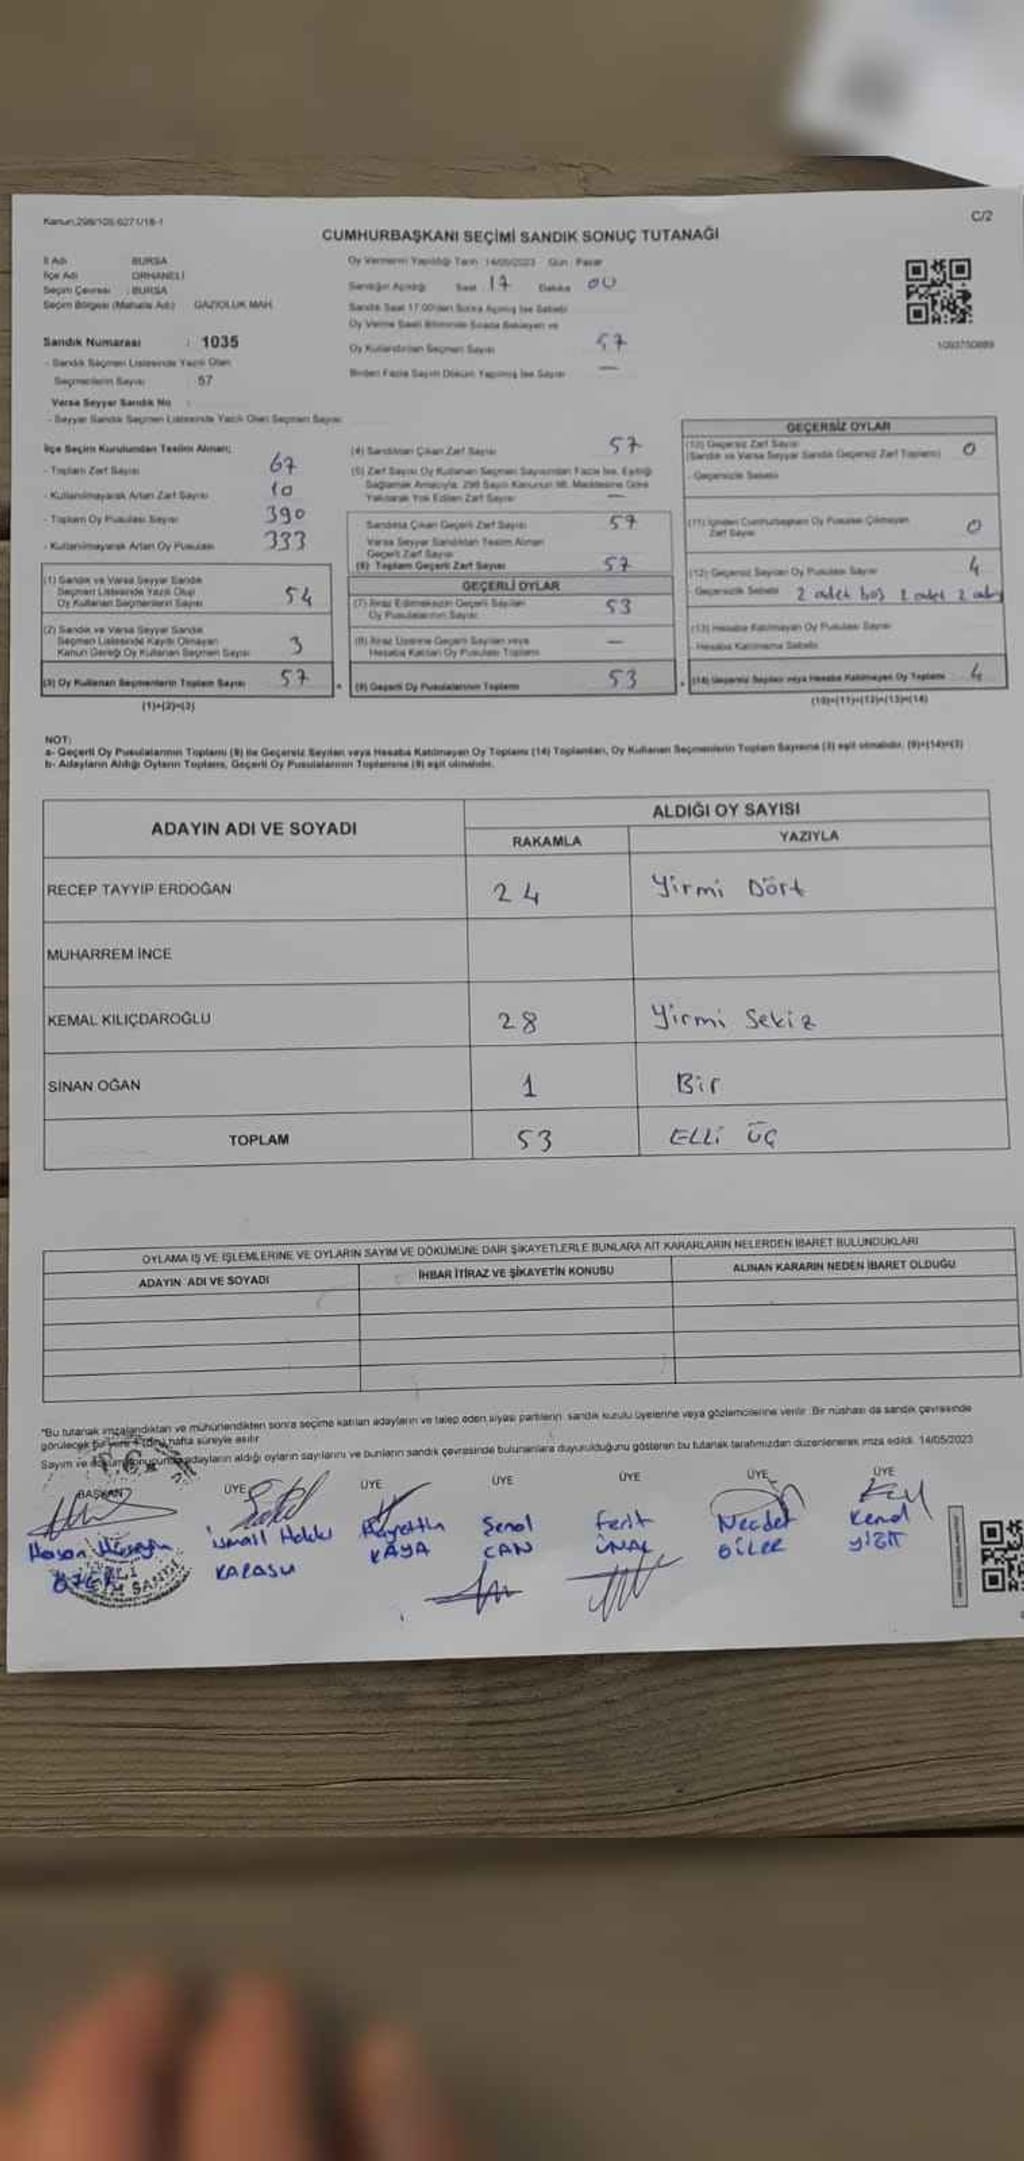 Kanun:298/105 6271/18-1
C/2
CUMHURBAŞKANI SEÇİMİ SANDIK SONUÇ TUTANAĞI
İl Adı BURSA
İlçe Adı ORHANELİ
Seçim Çevresi : BURSA
Seçim Bölgesi (Mahalle Adı) GAZİOLUK MAH.
Oy Vermenin Yapıldığı Tarih 14/05/2023 Gün : Pazar
Sandığın Açıldığı Saat 17 Dakika 00
Sandık Saat 17:00'den Sonra Açılmış İse Sebebi
Oy Verme Saati Bitiminde Sırada Bekleyen ve
Oy Kullandırılan Seçmen Sayısı 57
Birden Fazla Sayım Döküm Yapılmış İse Sayısı —
Sandık Numarası : 1035
- Sandık Seçmen Listesinde Yazılı Olan
Seçmenlerin Sayısı : 57
Varsa Seyyar Sandık No :
- Seyyar Sandık Seçmen Listesinde Yazılı Olan Seçmen Sayısı
İlçe Seçim Kurulundan Teslim Alınan;
- Toplam Zarf Sayısı 67
- Kullanılmayarak Artan Zarf Sayısı 10
- Toplam Oy Pusulası Sayısı 390
- Kullanılmayarak Artan Oy Pusulası 333
(1) Sandık ve Varsa Seyyar Sandık
Seçmen Listesinde Yazılı Olup
Oy Kullanan Seçmenlerin Sayısı 54
(2) Sandık ve Varsa Seyyar Sandık
Seçmen Listesinde Kaydı Olmayan
Kanun Gereği Oy Kullanan Seçmen Sayısı 3
(3) Oy Kullanan Seçmenlerin Toplam Sayısı 57
(1)+(2)=(3)
(4) Sandıktan Çıkan Zarf Sayısı 57
(5) Zarf Sayısı Oy Kullanan Seçmen Sayısından Fazla İse, Eşitliği
Sağlamak Amacıyla, 298 Sayılı Kanunun 98. Maddesine Göre
Yakılarak Yok Edilen Zarf Sayısı —
Sandıkta Çıkan Geçerli Zarf Sayısı 57
Varsa Seyyar Sandıktan Teslim Alınan
Geçerli Zarf Sayısı
(6) Toplam Geçerli Zarf Sayısı 57
GEÇERLİ OYLAR
(7) İtiraz Edilmeksizin Geçerli Sayılan
Oy Pusulalarının Sayısı 53
(8) İtiraz Üzerine Geçerli Sayılan veya
Hesaba Katılan Oy Pusulası Toplamı —
(9) Geçerli Oy Pusulalarının Toplamı 53
GEÇERSİZ OYLAR
(10) Geçersiz Zarf Sayısı
(Sandık ve Varsa Seyyar Sandık Geçersiz Zarf Toplamı) 0
- Geçersizlik Sebebi
(11) İçinden Cumhurbaşkanı Oy Pusulası Çıkmayan
Zarf Sayısı 0
(12) Geçersiz Sayılan Oy Pusulası Sayısı 4
Geçersizlik Sebebi 2 adet boş
(13) Hesaba Katılmayan Oy Pusulası Sayısı
- Hesaba Katılmama Sebebi
(14) Geçersiz Sayılan veya Hesaba Katılmayan Oy Toplamı 4
(10)+(11)+(12)+(13)=(14)
NOT:
a- Geçerli Oy Pusulalarının Toplamı (9) ile Geçersiz Sayılan veya Hesaba Katılmayan Oy Toplamı (14) Toplamları, Oy Kullanan Seçmenlerin Toplam Sayısına (3) eşit olmalıdır. (9)+(14)=(3)
b- Adayların Aldığı Oyların Toplamı, Geçerli Oy Pusulalarının Toplamına (9) eşit olmalıdır.
ADAYIN ADI VE SOYADI
ALDIĞI OY SAYISI
RAKAMLA YAZIYLA
RECEP TAYYIP ERDOĞAN 24 Yirmi Dört
MUHARREM İNCE
KEMAL KILIÇDAROĞLU 28 Yirmi Sekiz
SİNAN OĞAN 1 Bir
TOPLAM 53 ELLİ ÜÇ
OYLAMA İŞ VE İŞLEMLERİNE VE OYLARIN SAYIM VE DÖKÜMÜNE DAİR ŞİKAYETLERLE BUNLARA AİT KARARLARIN NELERDEN İBARET BULUNDUKLARI
ADAYIN ADI VE SOYADI İHBAR İTİRAZ VE ŞİKAYETİN KONUSU ALINAN KARARIN NEDEN İBARET OLDUĞU
*Bu tutanak imzalandıktan ve mühürlendikten sonra seçime katılan adayların ve talep eden siyasi partilerin sandık kurulu üyelerine veya gözlemcilerine verilir. Bir nüshası da sandık çevresinde
görülecek bir yere 1 (bir) hafta süreyle asılır.
Sayım ve döküm sonucunda adayların aldığı oyların sayılarını ve bunların sandık çevresinde bulunanlara duyurulduğunu gösteren bu tutanak tarafımızdan düzenlenerek imza edildi. 14/05/2023
BAŞKAN ÜYE ÜYE ÜYE ÜYE ÜYE ÜYE
Hasan Hüseyin İsmail Hakkı Hayrettin Şenol Ferit Necdet Kemal
KARASU KAYA CAN ÜNAL DİLER YİĞİT